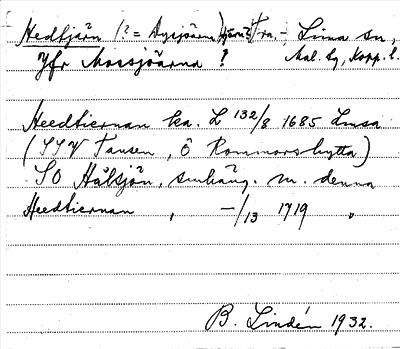 Hedtjärn (? = Aysjöarna) tjärn? Tra. - Lima sn,
Jfr Mossjöarna ? Mal. hg, Kopp. l.
Heedtiernan ka. L 132/8 1685 Lmsa
(SSV Tansen, Ö Rommorshytta)
SO Hålsjön, smhäng. m. denna
Heedtiernan , -/13 1719 "
B. Lindén 1932.